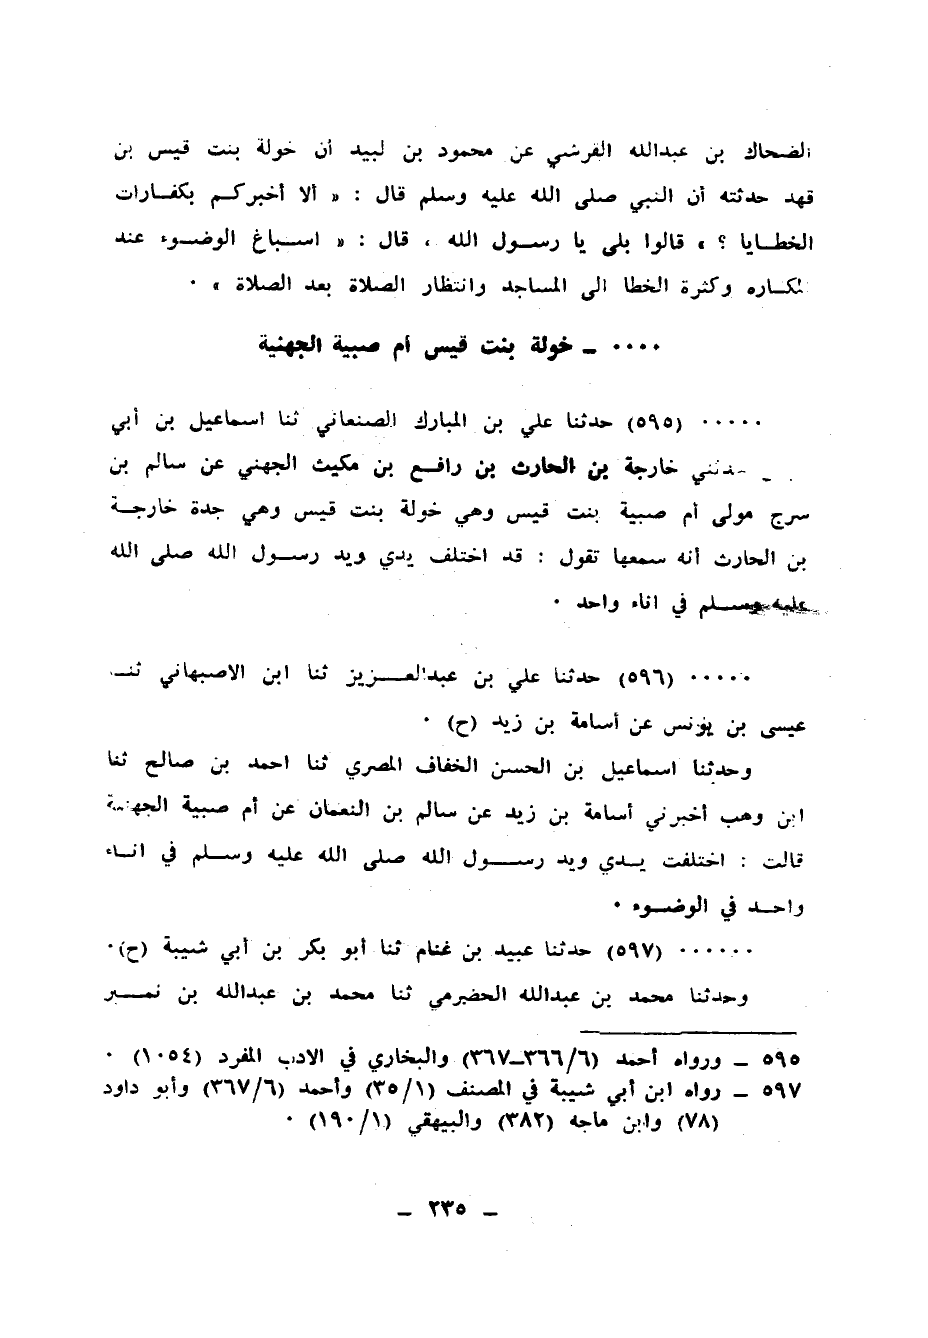 الضحاك بن عبدالله القرشي عن محمود بن لبيد أن خولة بنت قيس بن
قهد حدثته أن النبي صلى الله عليه وسلم قال : « ألا أخبركم بكفارات
الخطايا ؟ » قالوا بلى يا رسول الله ، قال : « اسباغ الوضوء عند
المكاره وكثرة الخطا الى المساجد وانتظار الصلاة بعد الصلاة » ٠
٠٠٠٠ ــ خولة بنت قيس أم صبية الجهنية
٠٠٠٠٠ (٥٩٥) حدثنا علي بن المبارك الصنعاني ثنا اسماعيل بن أبي
حدثني خارجة بن الحارث بن رافع بن مكيث الجهني عن سالم بن
سرج مولى أم صبية بنت قيس وهي خولة بنت قيس وهي جدة خارجة
بن الحارث أنه سمعها تقول : قد اختلف يدي ويد رسول الله صلى الله
عليه وسلم في اناء واحد ٠
٠٠٠٠٠ (٥٩٦) حدثنا علي بن عبدالعزيز ثنا ابن الاصبهاني ثنا
عيسى بن يونس عن أسامة بن زيد (ح) ٠
وحدثنا اسماعيل بن الحسن الخفاف المصري ثنا احمد بن صالح ثنا
ابن وهب أخبرني أسامة بن زيد عن سالم بن النعمان عن أم صبية الجهنية
قالت : اختلفت يدي ويد رسول الله صلى الله عليه وسلم في اناء
واحد في الوضوء ٠
٠٠٠٠٠٠ (٥٩٧) حدثنا عبيد بن غنام ثنا أبو بكر بن أبي شيبة (ح)٠
وحدثنا محمد بن عبدالله الحضرمي ثنا محمد بن عبدالله بن نمير
٥٩٥ ــ ورواه أحمد (٣٦٦/٦ــ٣٦٧) والبخاري في الادب المفرد (١٠٥٤) ٠
٥٩٧ ــ رواه ابن أبي شيبة في المصنف (٣٥/١) وأحمد (٣٦٧/٦) وأبو داود
(٧٨) وابن ماجه (٣٨٢) والبيهقي (١٩٠/١) ٠
ــ ٢٣٥ ــ